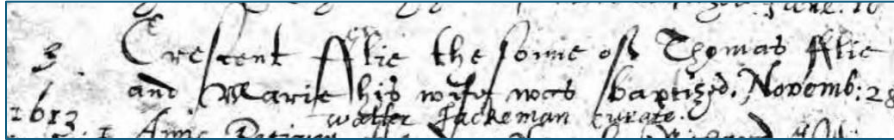 June. 10
3 Crescent fflie the sonne of Thomas fflie
and Marie his wife was baptized. Novemb: 28
1613 walter Jackeman curate.
Anne